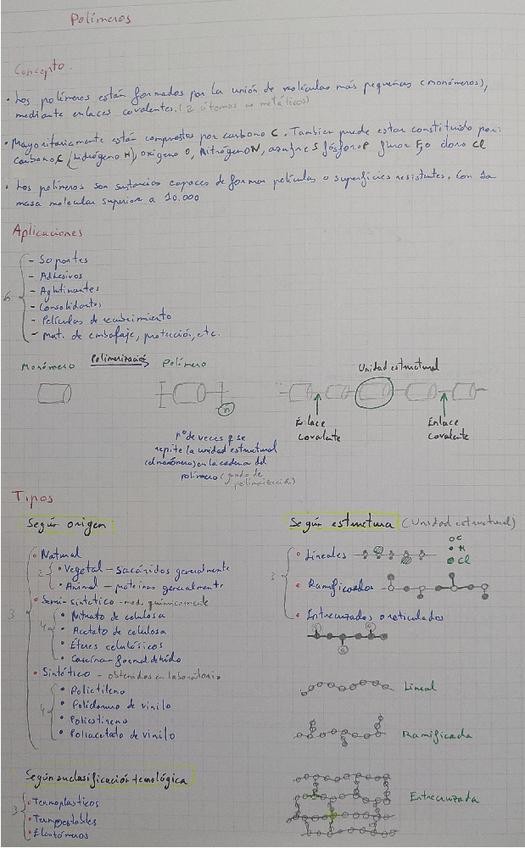 Polímeros
Concepto.
• Los polímeros están formados por la unión de moléculas más pequeñas (monómeros),
mediante enlaces covalentes. (2 átomos no metálicos)
• Mayoritariamente están compuestos por carbono C. Tambien puede estar constituido por:
carbono C, hidrógeno H, oxígeno O, Nitrógeno N, azufre S fósforo P fluor F, o cloro Cl
• Los polímeros son sustancias capaces de formar películas o superficies resistentes. Con una
masa molecular superior a 10.000
Aplicaciones
6
- Soportes
- Adhesivos
- Aglutinantes
- Consolidantes
- Películas de recubrimiento
- Mat. de embalaje, protección, etc.
Monómero Polimerizació Polímero
n
Nº de veces q se
repite la unidad estructural
(el monómero) en la cadena del
polímero (grado de
polimerización)
Unidad estructural
Enlace
Covalente
Enlace
Covalente
Tipos
Según origen
3
• Natural
2
• Vegetal - sacáridos generalmente
• Animal - proteinas generalmente
• Semi-sintético - mod. químicamente
4
• Nitrato de celulosa
• Acetato de celulosa
• Éteres celulósicos
• Caseína-formaldehido
• Sintético - obtenidos en laboratorio
4
• Polietileno
• Policloruro de vinilo
• Poliestireno
• Poliacetato de vinilo
Según su clasificación tecnológica
3
• Termoplasticos
• Termoestables
• Elastómeros
Según estructura (Unidad estructural)
3
• Lineales
C
H
Cl
• Ramificados
• Entrecruzados o reticulados
Lineal
Ramificada
Entrecruzada